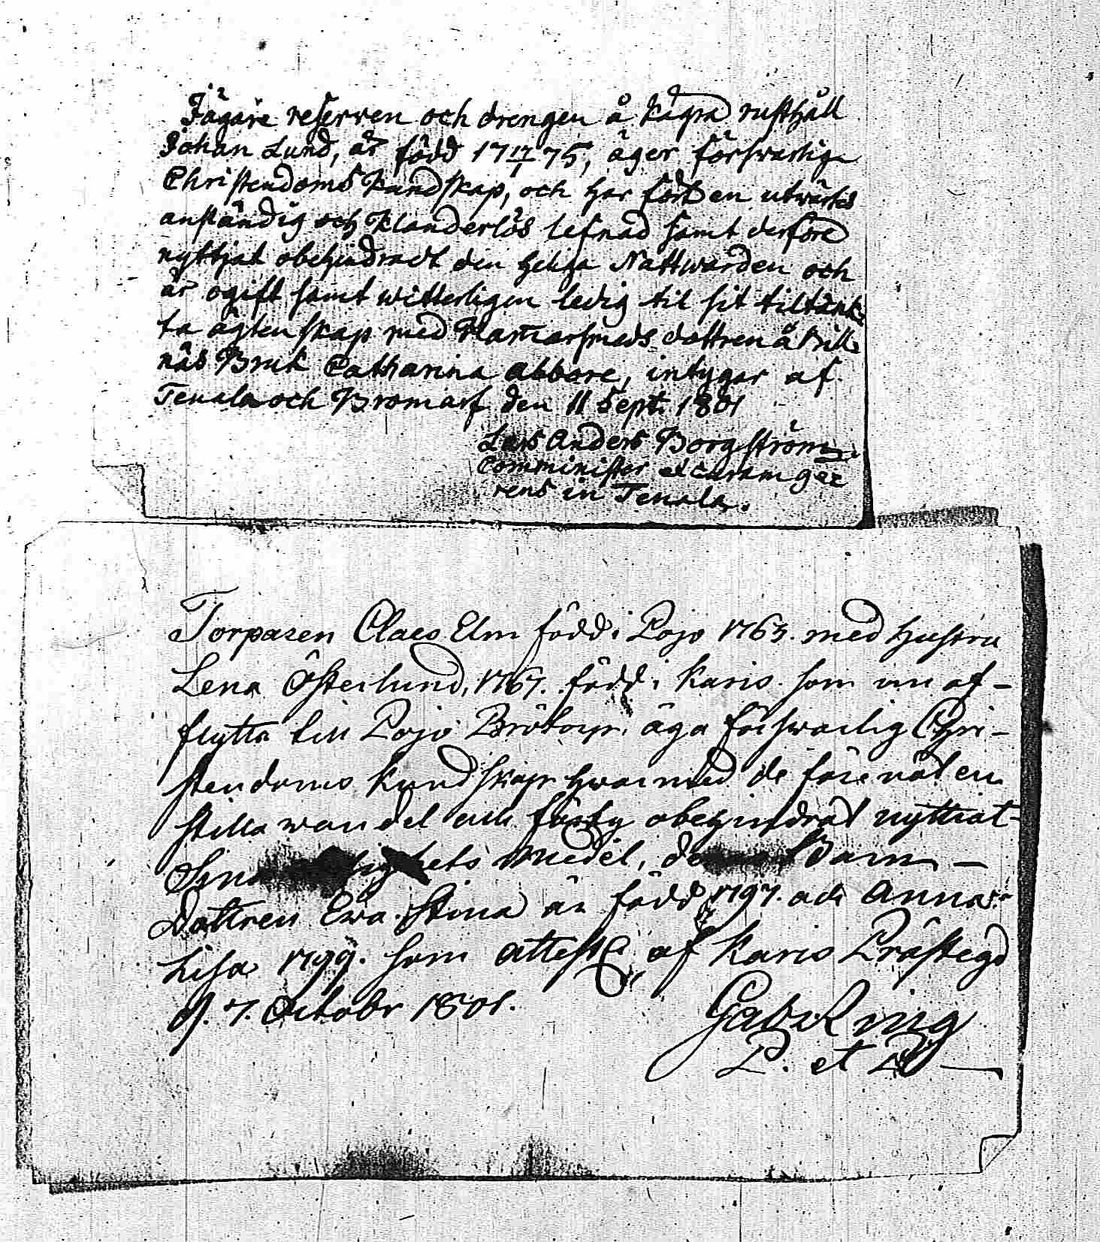 Jägare reserven och drengen å Rägra rusthåll
Johan Lund, är född 17 17/1 75, äger försvarlig
Christendoms Kundskap, och har fördt en utwärtes
anständig och Klanderlös lefnad samt derföre
nyttjat obehindradt den heliga Nattwarden och
är ogift samt witterligen ledig til sit tiltänk-
ta ägtenskap med Hamarsmeds dottren å Bill-
näs Bruk Catharina Abbore, intygar af
Tenala och Bromarf den 11 Sept. 1801
Lars Anders Borgström
Comminister et curam ge-
rens in Tenala.
Torparen Claes Elm född i Pojo 1763. med hustru
Lena Österlund, 1767. född i Karis. som nu af-
flytta till Pojo äga försvarlig Chri-
stendoms kundskap hwarmed de förenat en
stilla wandel och obehindrat nyttiat
Sina medel, Barn
Dottren Ewa Stina är född 1797. och Anna
Lisa 1799. som attest. af Karis Prästegd
d. 7. Octobr 1801.
Gabr Ring
P. et